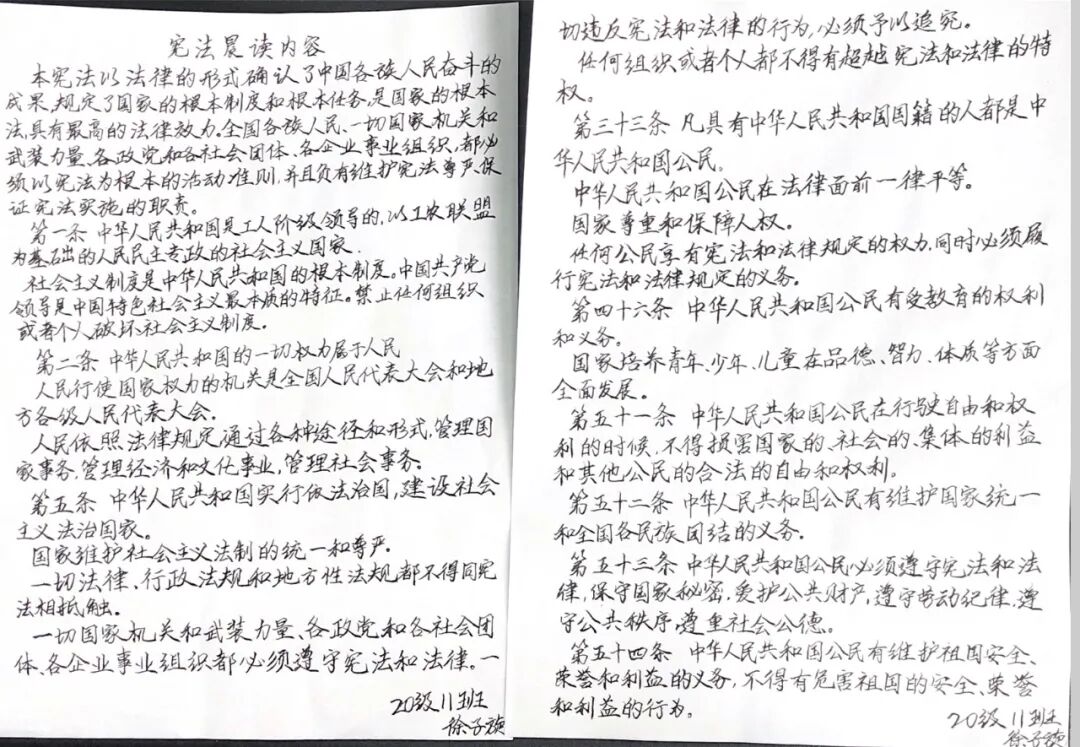 宪法晨读内容
本宪法以法律的形式确认了中国各族人民奋斗的
成果,规定了国家的根本制度和根本任务,是国家的根本
法,具有最高的法律效力。全国各族人民、一切国家机关和
武装力量、各政党和各社会团体、各企业事业组织,都必
须以宪法为根本的活动准则,并且负有维护宪法尊严、保
证宪法实施的职责。
第一条 中华人民共和国是工人阶级领导的,以工农联盟
为基础的人民民主专政的社会主义国家.
社会主义制度是中华人民共和国的根本制度。中国共产党
领导是中国特色社会主义最本质的特征。禁止任何组织
或者个人破坏社会主义制度。
第二条 中华人民共和国的一切权力属于人民
人民行使国家权力的机关是全国人民代表大会和地
方各级人民代表大会.
人民依照法律规定,通过各种途径和形式,管理国
家事务,管理经济和文化事业,管理社会事务。
第五条 中华人民共和国实行依法治国,建设社会
主义法治国家。
国家维护社会主义法制的统一和尊严.
一切法律、行政法规和地方性法规都不得同宪
法相抵触。
一切国家机关和武装力量、各政党和各社会团
体、各企业事业组织都必须遵守宪法和法律。一
20级11班
徐子
切违反宪法和法律的行为,必须予以追究。
任何组织或者个人都不得有超越宪法和法律的特
权。
第三十三条 凡具有中华人民共和国国籍的人都是中
华人民共和国公民。
中华人民共和国公民在法律面前一律平等。
国家尊重和保障人权。
任何公民享有宪法和法律规定的权力,同时必须履
行宪法和法律规定的义务。
第四十六条 中华人民共和国公民有受教育的权利
和义务。
国家培养青年、少年、儿童在品德、智力、体质等方面
全面发展。
第五十一条 中华人民共和国公民在行驶自由和权
利的时候,不得损害国家的、社会的、集体的利益
和其他公民的合法的自由和权利。
第五十二条 中华人民共和国公民有维护国家统一
和全国各民族团结的义务.
第五十三条 中华人民共和国公民必须遵守宪法和法
律,保守国家秘密,爱护公共财产,遵守劳动纪律,遵
守公共秩序,遵重社会公德。
第五十四条 中华人民共和国公民有维护祖国安全、
荣誉和利益的义务,不得有危害祖国的安全、荣誉
和利益的行为。
20级11班
徐子